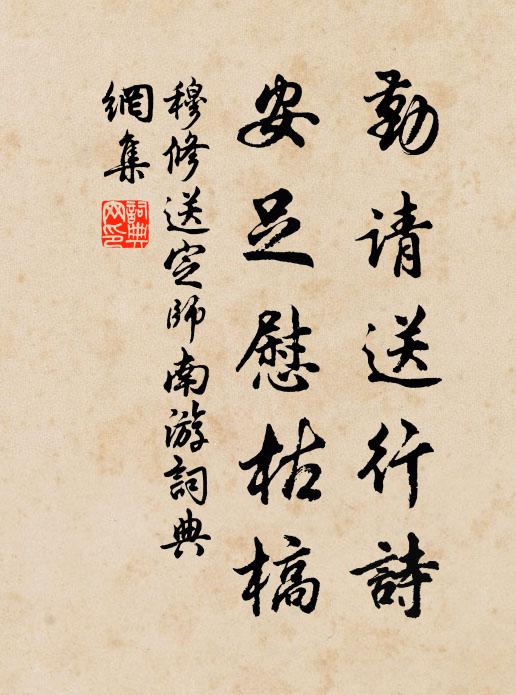 勤请送行詩
安足慰枯槁
穆修送定師南游詞典
網集
詞典
网印